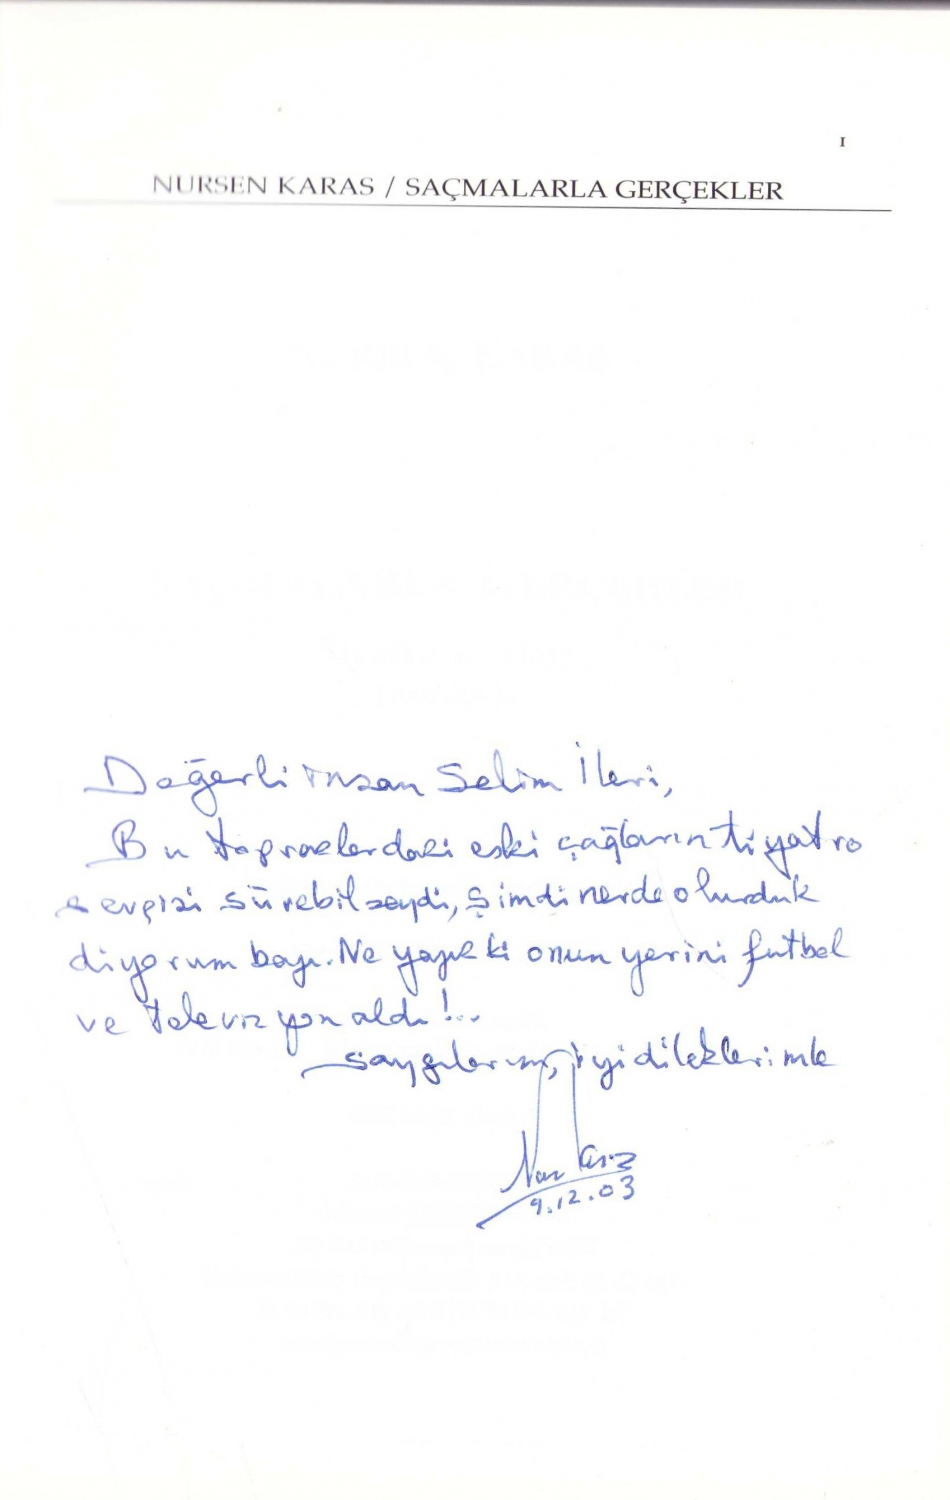 I
NURSEN KARAS / SAÇMALARLA GERÇEKLER
Değerli insan Selim İleri,
Bu topraklardaki eski çağların tiyatro
sevgisi sürebilseydi, şimdi nerde olurduk
diyorum hep. Ne yapık ki onun yerini futbol
ve televizyon aldı!..
saygılarım, iyi dileklerimle
9.12.03